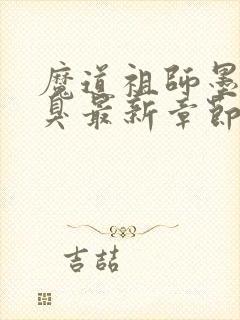 魔道祖師墨
臭最新章節
吉喆